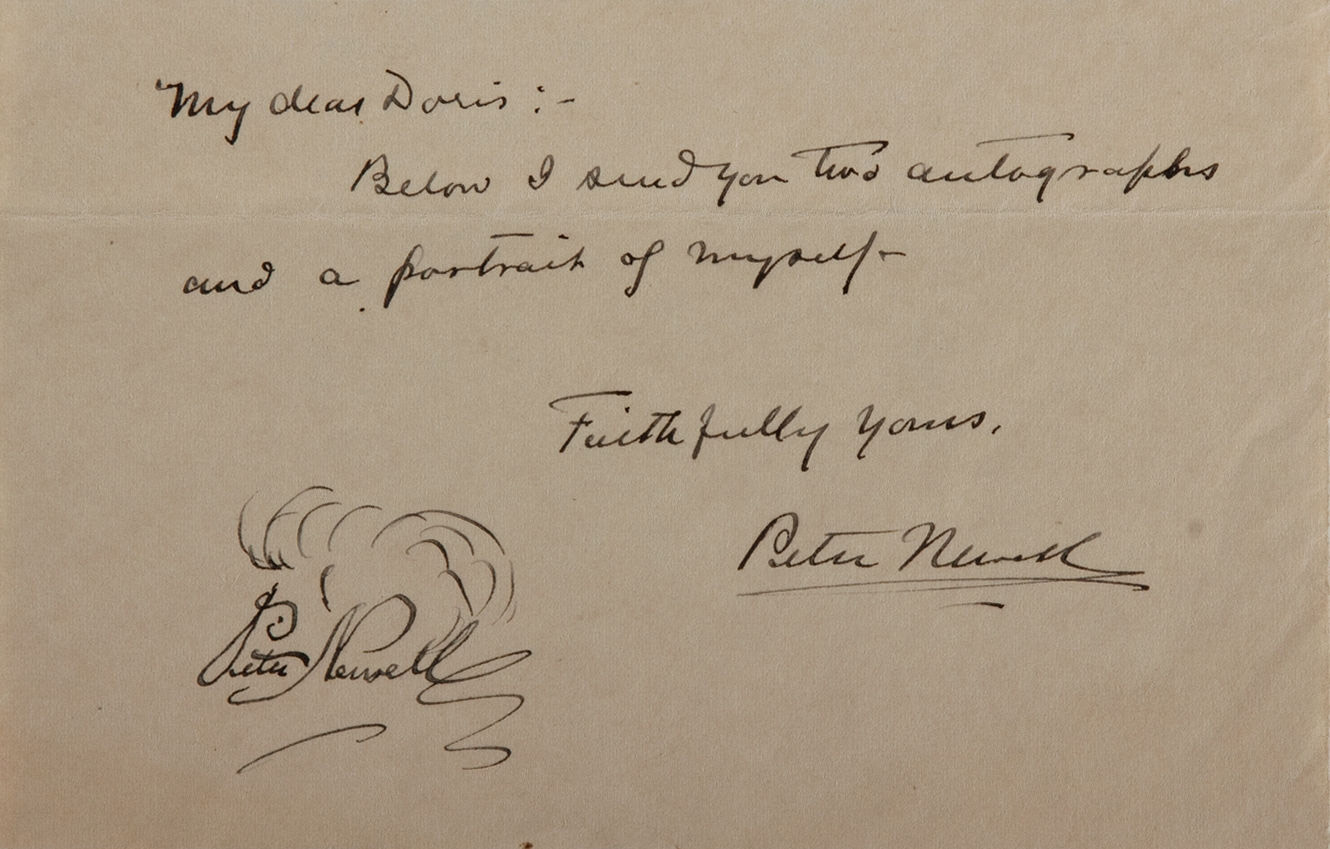 My dear Doris :-
Below I send you two autographs
and a portrait of myself-
Faithfully yours,
Peter Newell
Peter Newell